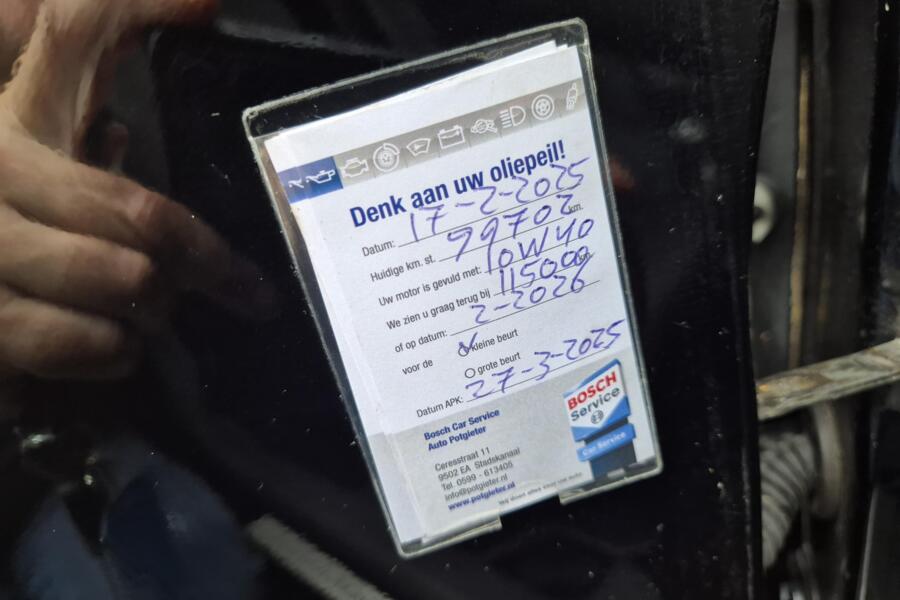 Denk aan uw oliepeil!
Datum: 17-2-2025
Huidige km. st. 99702 km.
Uw motor is gevuld met: 10W40
We zien u graag terug bij 115000 km
of op datum: 2-2026
voor de kleine beurt
grote beurt
Datum APK: 27-3-2025
Bosch Car Service
Auto Potgieter
Ceresstraat 11
9502 EA Stadskanaal
Tel. 0599 - 613405
info@potgieter.nl
www.potgieter.nl
BOSCH
Service
Car Service
Wij doen alles voor uw auto